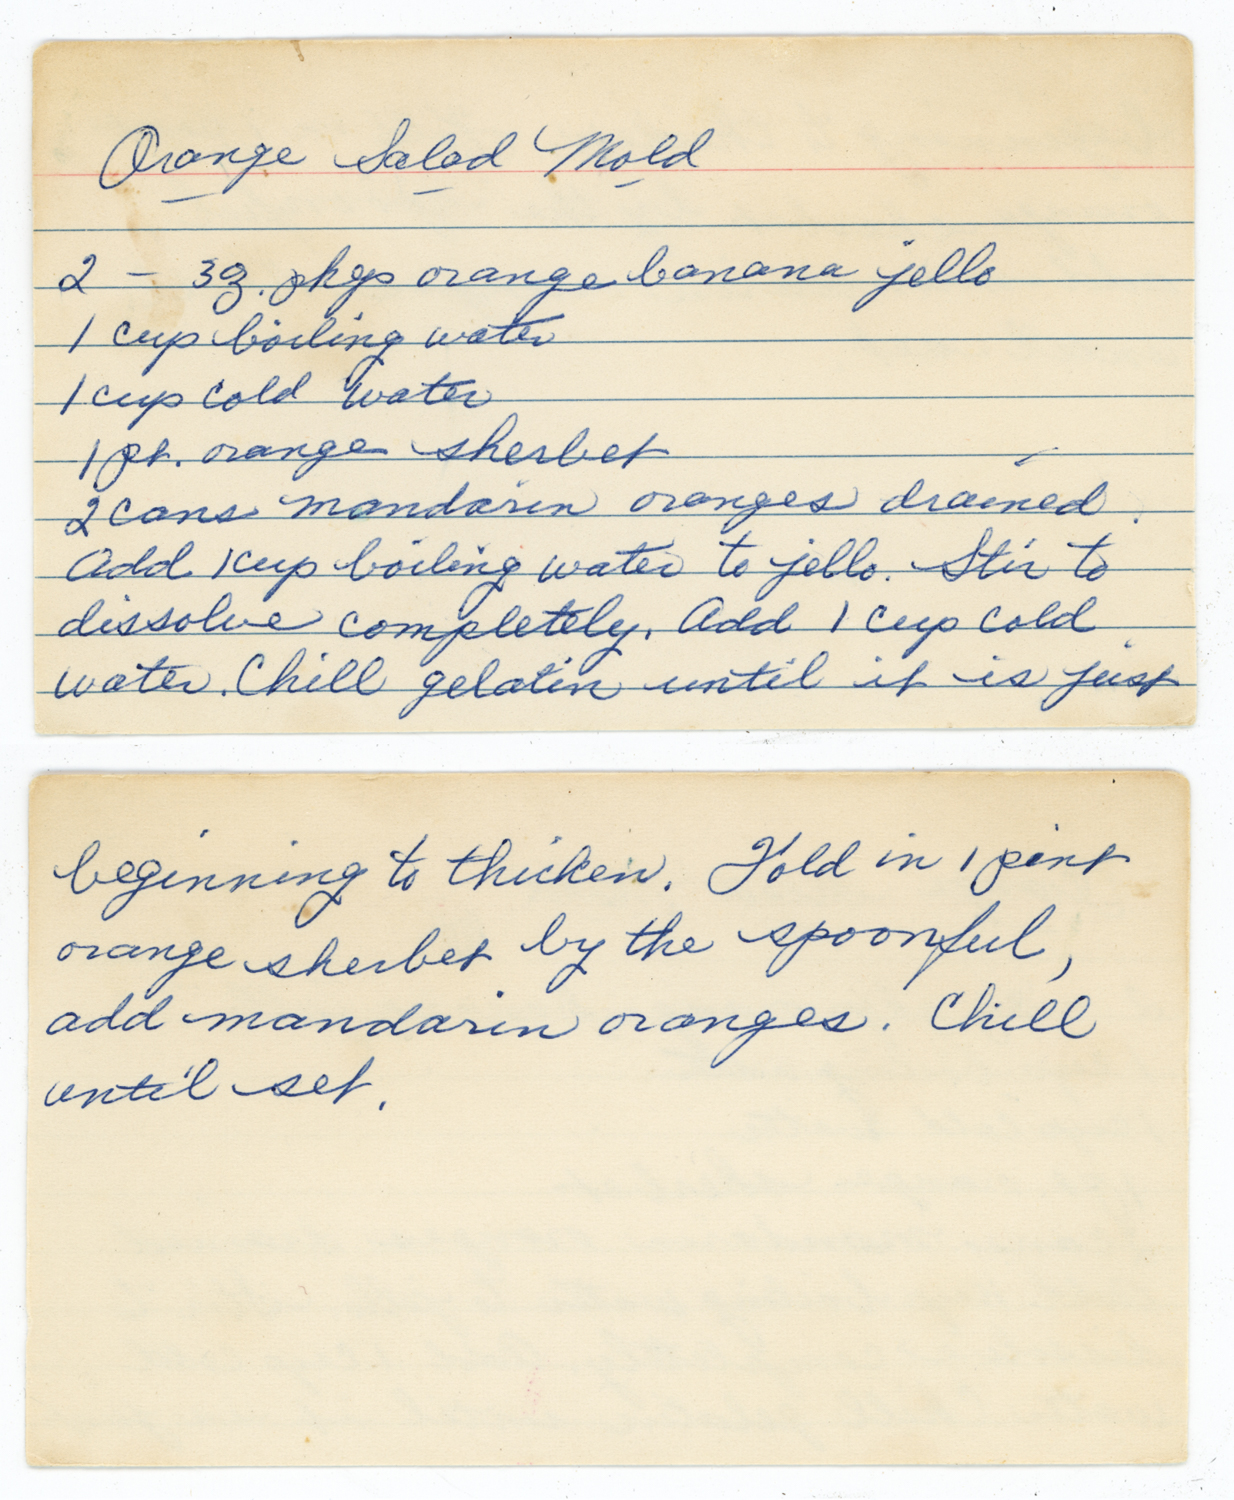 Orange Salad Mold
2 - 3 oz. pkgs orange banana jello
1 cup boiling water
1 cup cold water
1 pt. orange sherbet
2 cans mandarin oranges drained.
Add 1 cup boiling water to jello. Stir to
dissolve completely. Add 1 cup cold
water. Chill gelatin until it is just
beginning to thicken. Fold in 1 pint
orange sherbet by the spoonful,
add mandarin oranges. Chill
until set.